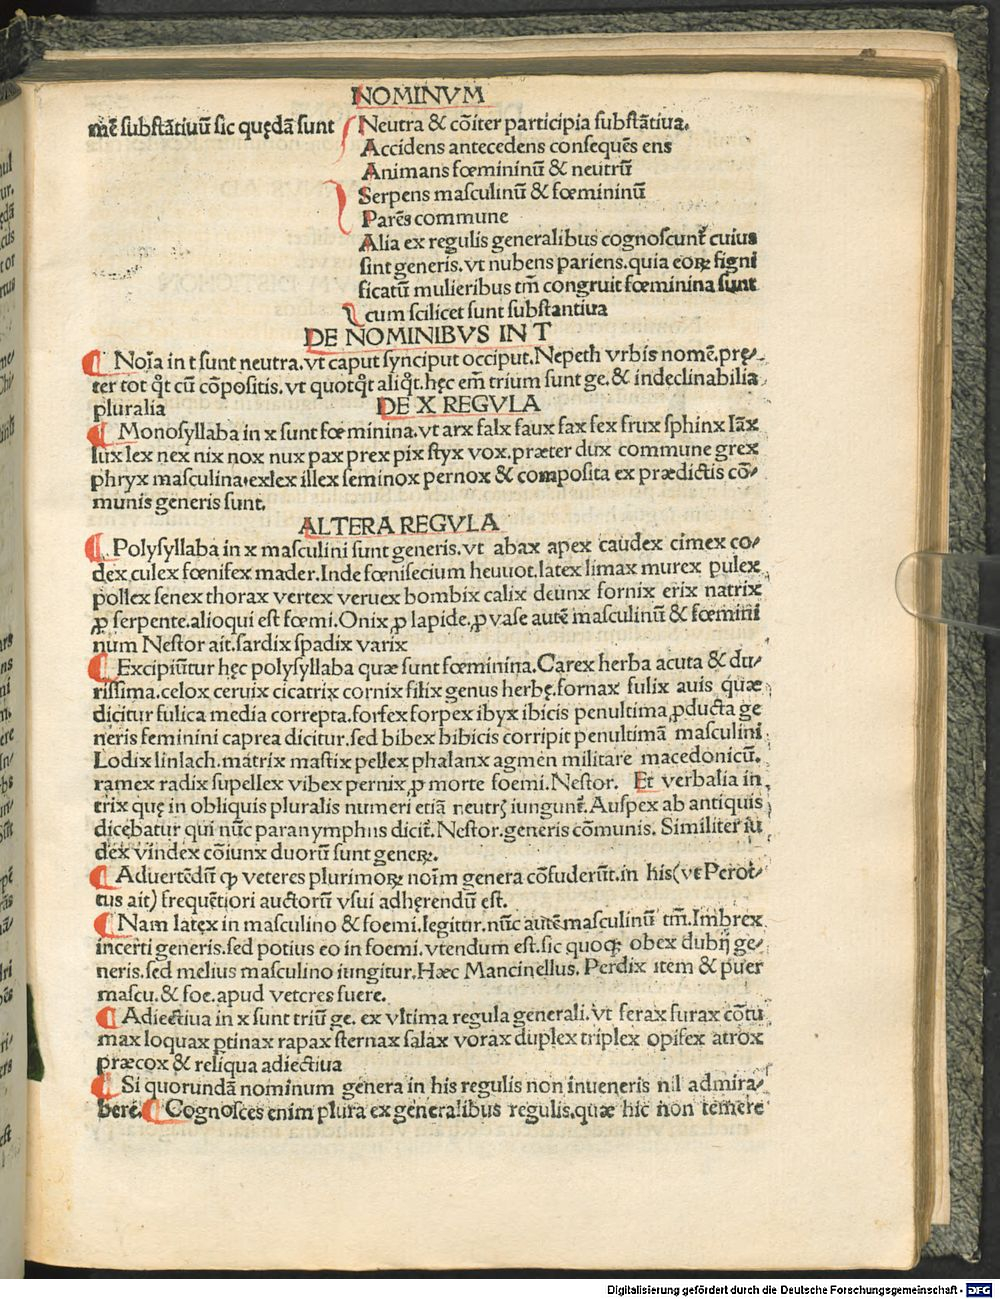 NOMINVM
mē substātiuū sic quędā sunt Neutra & cōiter participia substātiua.
Accidens antecedens consequēs ens
Animans fœmininū & neutrū
Serpens masculinū & fœmininū
Parēs commune
Alia ex regulis generalibus cognoscunt̃ cuius
sint generis. vt nubens pariens. quia eoꝝ signi
ficatū mulieribus tm̄ congruit fœminina sunt
cum scilicet sunt substantiua
DE NOMINIBVS IN T
Noīa in t sunt neutra. vt caput synciput occiput. Nepeth vrbis nomē. prę-
ter tot q̄t cū cōpositis. vt quotq̄t aliq̄t. hęc em̄ trium sunt ge. & indeclinabilia
pluralia DE X REGVLA
Monosyllaba in x sunt fœminina. vt arx falx faux fax fex frux sphinx lāx
lux lex nex nix nox nux pax prex pix styx vox. præter dux commune grex
phryx masculina. exlex illex seminox pernox & composita ex prædictis cō-
munis generis sunt.
ALTERA REGVLA
Polysyllaba in x masculini sunt generis. vt abax apex caudex cimex co-
dex culex fœnisex mader. Inde fœnisecium heuuot. latex limax murex pulex
pollex senex thorax vertex veruex bombix calix deunx fornix erix natrix
ꝓ serpente. alioqui est fœmi. Onix ꝓ lapide. ꝓ vase autē masculinū & fœmini
num Nestor ait. sardix spadix varix
Excipiūtur hęc polysyllaba quæ sunt fœminina. Carex herba acuta & du-
rissima. celox ceruix cicatrix cornix filix genus herbę. fornax fulix auis quæ
dicitur fulica media correpta. forfex forpex ibyx ibicis penultima ꝓducta ge
neris feminini caprea dicitur. sed bibex bibicis corripit penultimā masculini
Lodix linlach. matrix mastix pellex phalanx agmen militare macedonicū.
ramex radix supellex vibex pernix ꝓ morte foemi. Nestor. Et verbalia in
trix quę in obliquis pluralis numeri etiā neutrꝭ iungunt̃. Auspex ab antiquis
dicebatur qui nūc paranymphus dicit̃. Nestor. generis cōmunis. Similiter iu
dex vindex cōiunx duorū sunt geneꝝ.
Aduertēdū ꝙ veteres plurimoꝝ noīm genera cōfuderūt. in his (vt Perot-
tus ait) frequētiori auctorū vsui adhęrendū est.
Nam latex in masculino & foemi. legitur. nūc autē masculinū tm̄. Imbrex
incerti generis. sed potius eo in foemi. vtendum est. sic quoqꝫ obex dubij ge-
neris. sed melius masculino iungitur. Hæc Mancinellus. Perdix item & puer
mascu. & foe. apud veteres fuere.
Adiectiua in x sunt triū ge. ex vltima regula generali. vt ferax furax cōtu
max loquax ꝑtinax rapax sternax salax vorax duplex triplex opifex atrox
præcox & reliqua adiectiua
Si quorundā nominum genera in his regulis non inueneris nil admira-
bere. Cognosces enim plura ex generalibus regulis. quæ hic non temere
Digitalisierung gefördert durch die Deutsche Forschungsgemeinschaft - DFG